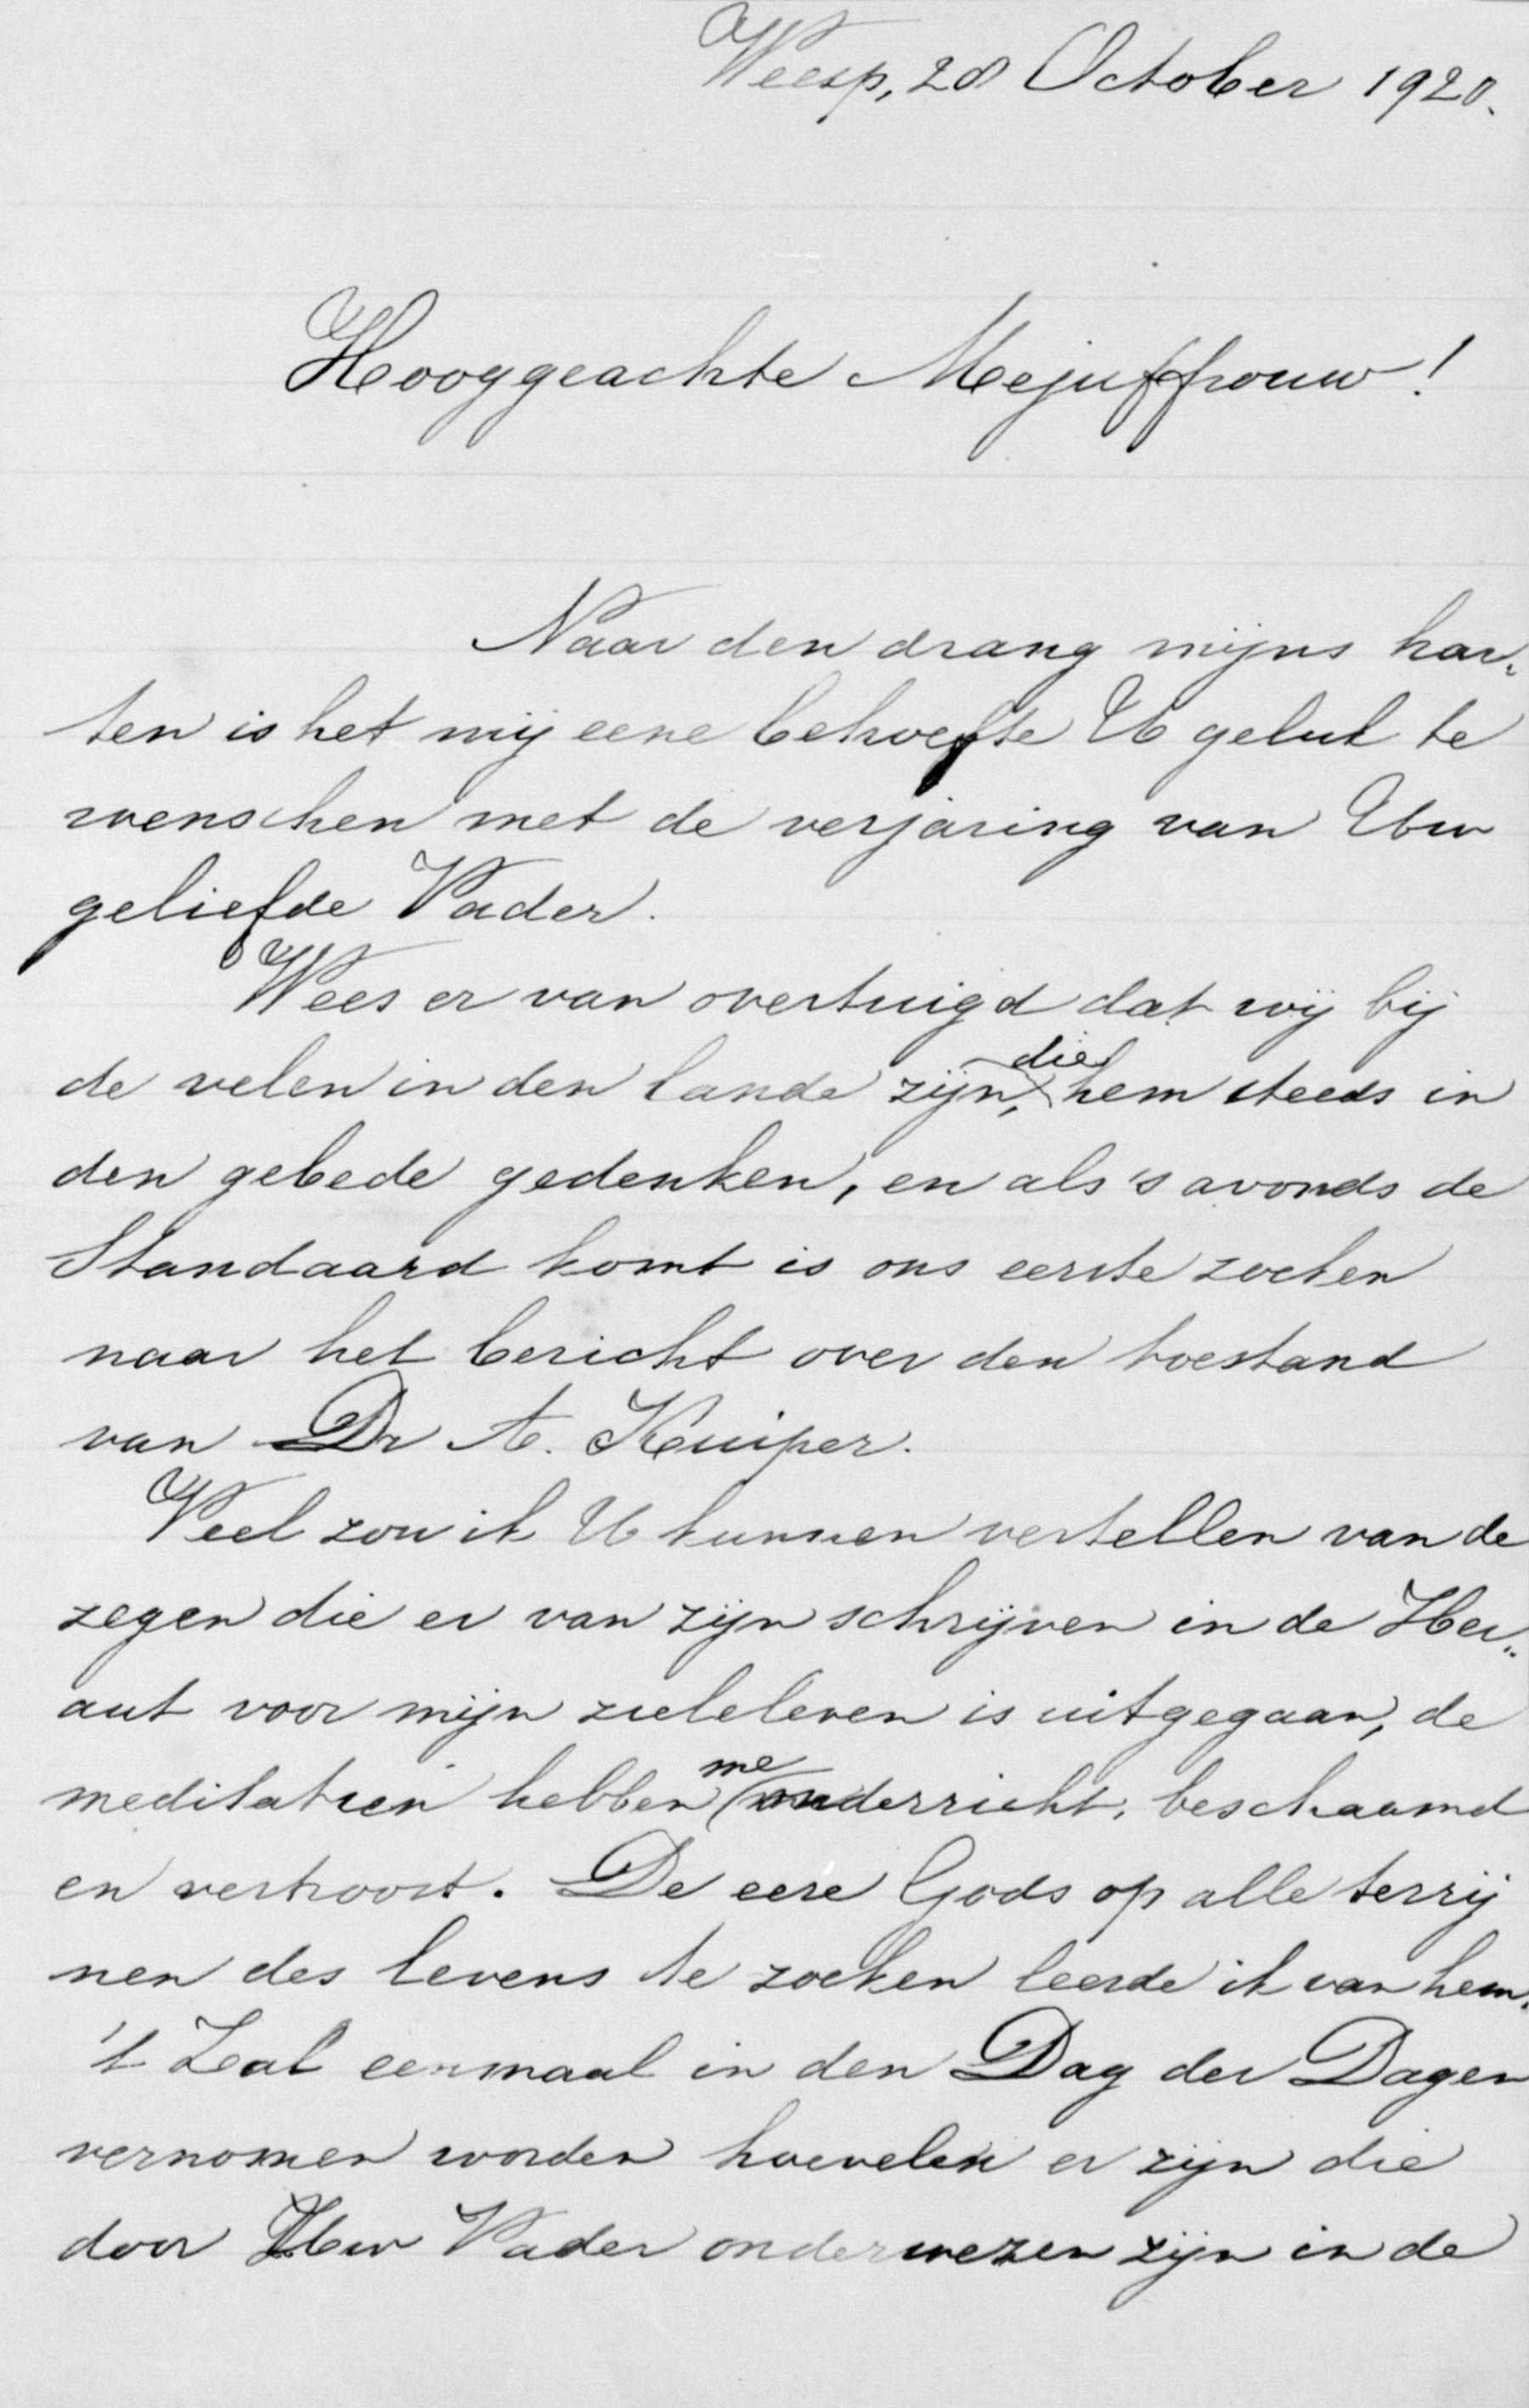 Weesp, 28 October 1920.
Hooggeachte Mejuffrouw!
Naar den drang mijns har-
ten is het mij eene behoefte U geluk te
wenschen met de verjaring van Uw
geliefde Vader.
Wees er van overtuigd dat wij bij
de velen in den lande zijn, die hem steeds in
den gebede gedenken, en als 's avonds de
Standaard komt is ons eerste zoeken
naar het bericht over den toestand
van Dr A. Kuiper.
Veel zou ik U kunnen vertellen van de
zegen die er van zijn schrijven in de Her-
aut voor mijn zieleleven is uitgegaan, de
meditatien hebben me onderricht, beschaamd
en vertroost. De eere Gods op alle terrij
nen des levens te zoeken leerde ik van hem.
't Zal eenmaal in den Dag der Dagen
vernomen worden hoevelen er zijn die
door Uw Vader onderwezen zijn in de